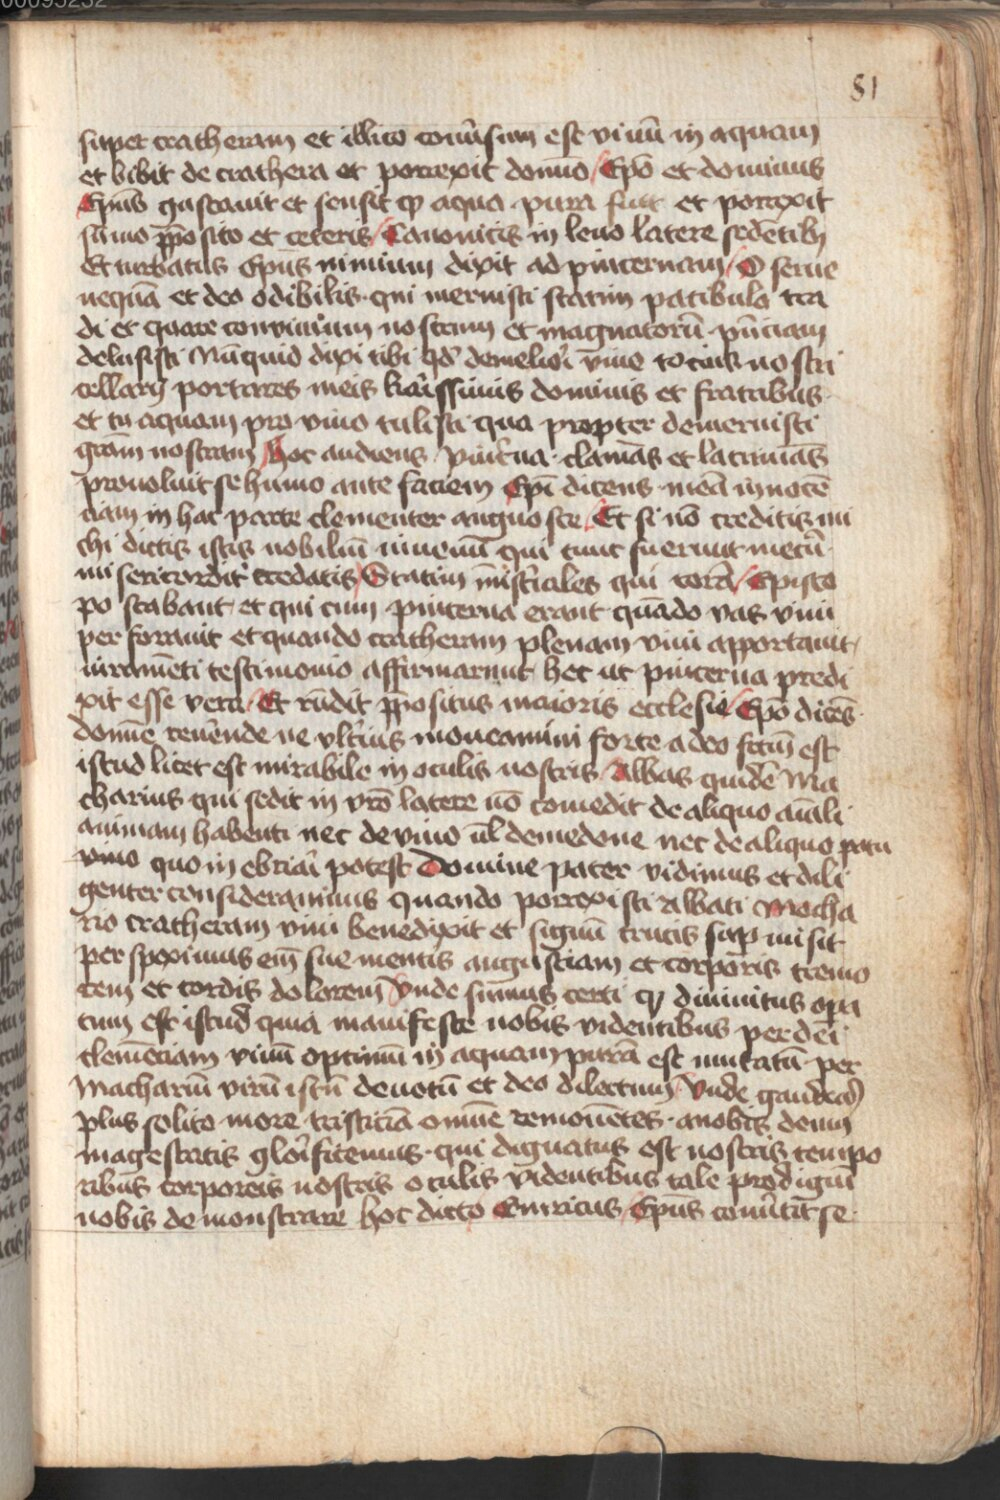 00095232
81
super cratheram et illico conv̄sum est vinū in aquam
et bibit de crathera et porrexit domīo Ep̄o et dominus
Ep̄us gustauit et sensit qꝫ aqua pura fuit et porrexit
sūmo p̄posito et ceteris Canonicis in leuo latere sedētibꝫ
Et turbatus Ep̄us nimium dixit ad pincernam O serue
nequā et deo odibilis qui meruisti statim patibulo tra
di et quare conuiuium nostrum et magnatorū p̄nciam
delusisti Nūquid dixi tibi qd̄ de meliori vino tocius nostri
cellarij portares meis kar̄issimis dominis et fratribus
et tu aquam pro vino tulisti qua propter demeruisti
grām nostram hoc audiens pincerna clamās et lacrimās
prouoluit se humo ante faciem Ep̄i dicens meā innocē
ciam in hac parte clementer angnoscere Et si nō creditis mi
chi dictis istis nobiliū iuuenū qui tunc fuerunt mecū
misericordit̄ credatis Statim mīst̄iales qui corā Episco
po stabant et qui cum pincerna erant quādo vas vini
perforauit et quando cratheram plenam vini apportauit
iuramēti testimonio affirmarunt hec ut pincerna predi
xit esse vera Et rn̄dit p̄positus maioris ecclesie Ep̄o dicēs
domīe reuēnde ne vlt̄ius moueamini forte a deo fctm̄ est
istud licet est mirabile in oculis nostris Abbas quidē Ma
charius qui sedit in vr̄o latere nō comedit de aliquo aīali
animam habenti nec de vino ul̄ de medone nec de aliquo potu
vino quo inebriari potest Domine pater vidimus et dili
genter considerauimus quando porrexisti abbati Macha
rio cratheram vini benedixit et signū crucis sup̄ misit
perspeximus em̄ sue mentis angustiam et corporis tremo
rem et cordis dolorem Vnde sumus certi qꝫ diuinitus opa
tum est istud quia manifeste nobis videntibus per dei
clemēciam vinū optimū in aquam purā est mutatū per
Macharium virū istū deuotū et deo dilectum Vnde gaudeam̄
plus solito more tristiciā omnē remouētes a nobis deum
magestatis glōificemus qui dignatus est nostris tempo
ribus corporeis nostris oculis videntibus tale prodigiū
nobis demonstrare hoc dicto Enricus Ep̄us conūtit se